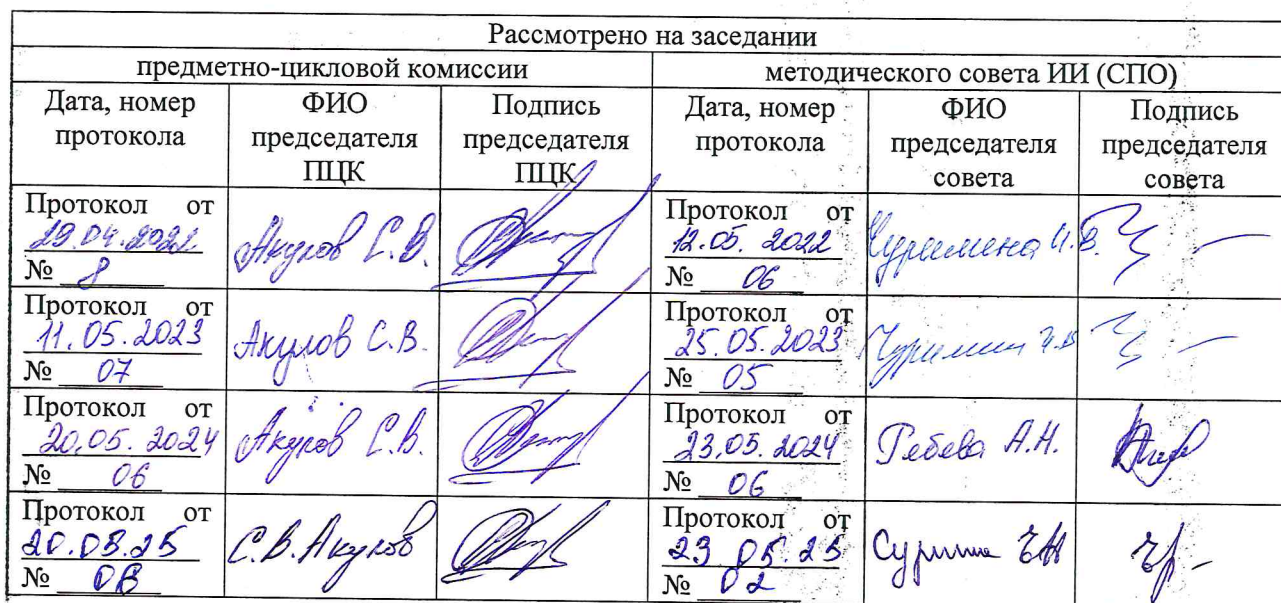 Рассмотрено на заседании
предметно-цикловой комиссии
методического совета ИИ (СПО)
Дата, номер протокола
ФИО председателя ПЦК
Подпись председателя ПЦК
Дата, номер протокола
ФИО председателя совета
Подпись председателя совета
Протокол от
29.04.2022
№ 8
Акулов С.В.
Протокол от
12.05.2022
№ 06
Протокол от
11.05.2023
№ 07
Акулов С.В.
Протокол от
25.05.2023
№ 05
Протокол от
20.05.2024
№ 06
Акулов С.В.
Протокол от
23.05.2024
№ 06
А.Н.
Протокол от
№
С.В. Акулов
Протокол от
23.05.25
№ 02